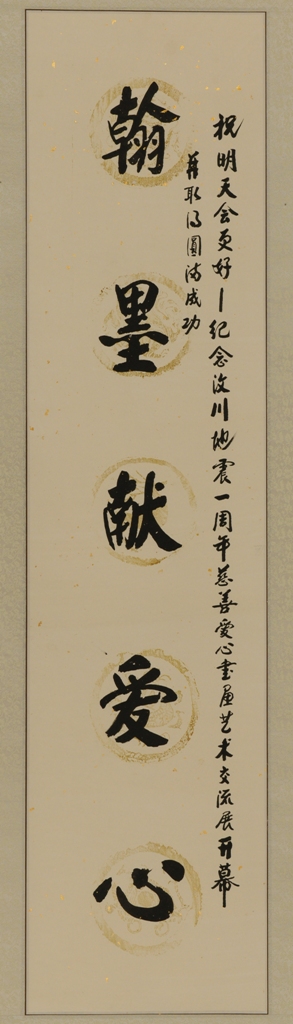 祝明天会更好—纪念汶川地震一周年慈善爱心书画艺术交流展开幕
并取得圆满成功
翰墨献爱心